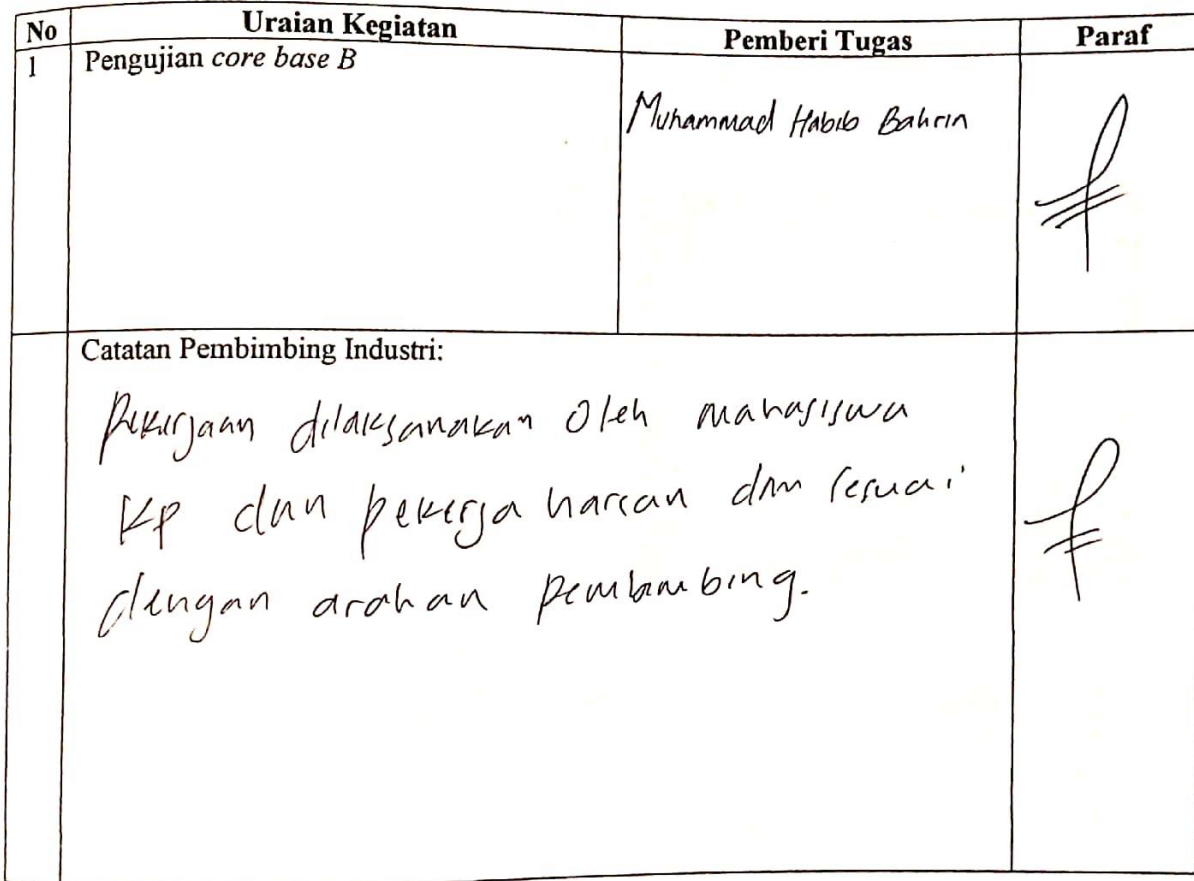 No Uraian Kegiatan Pemberi Tugas Paraf
1 Pengujian core base B
Muhammad Habib Bahrin
Catatan Pembimbing Industri:
Pekerjaan dilaksanakan Oleh mahasiswa
KP dan pekerja harian dan sesuai
dengan arahan pembimbing.